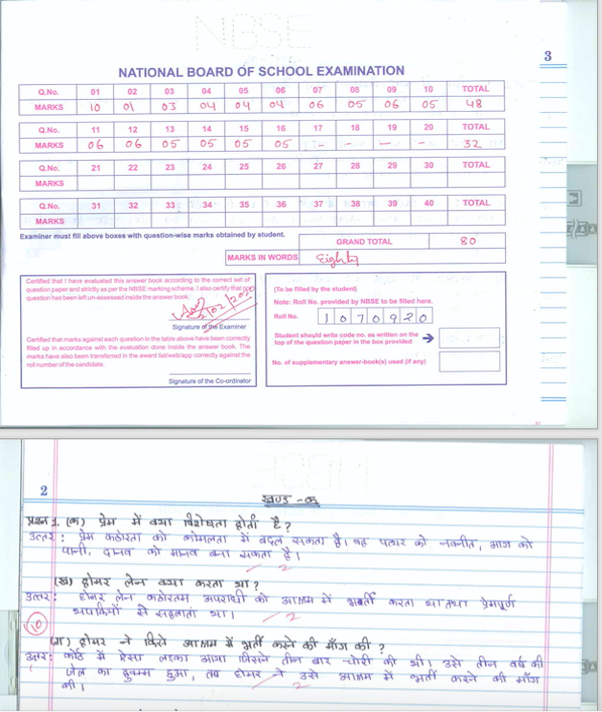 3
NATIONAL BOARD OF SCHOOL EXAMINATION
Q.No. 01 02 03 04 05 06 07 08 09 10 TOTAL
MARKS 10 01 03 04 04 04 06 05 06 05 48
Q.No. 11 12 13 14 15 16 17 18 19 20 TOTAL
MARKS 06 06 05 05 05 05 - - - - 32
Q.No. 21 22 23 24 25 26 27 28 29 30 TOTAL
MARKS
Q.No. 31 32 33 34 35 36 37 38 39 40 TOTAL
MARKS
Examiner must fill above boxes with question-wise marks obtained by student.
GRAND TOTAL 80
MARKS IN WORDS Eighty
Certified that I have evaluated this answer book according to the correct set of
question paper and strictly as per the NBSE marking scheme. I also certify that no
question has been left un-assessed inside the answer book.
Signature of the Examiner
Certified that marks against each question in the table above have been correctly
filled up in accordance with the evaluation done inside the answer book. The
marks have also been transferred in the award list/web/app correctly against the
roll number of the candidate.
Signature of the Co-ordinator
(To be filled by the student)
Note: Roll No. provided by NBSE to be filled here.
Roll No. 1070920
Student should write code no. as written on the
top of the question paper in the box provided
No. of supplementary answer-book(s) used (if any)
2
खण्ड - क
प्रश्न 1. (क) प्रेम में क्या विशेषता होती है?
उत्तर : प्रेम कठोरता को कोमलता में बदल सकता है। वह पत्थर को नवनीत, आग को
पानी, दानव को मानव बना सकता है।
2
(ख) होमर लेन क्या करता था?
उत्तर : होमर लेन कठोरतम अपराधी को आश्रम में भर्ती करता था तथा प्रेमपूर्ण
थपकियों से सहलाता था।
2
10
(ग) होमर ने किसे आश्रम में भर्ती करने की माँग की?
उत्तर : कोर्ट में ऐसा लड़का आया जिसने तीन बार चोरी की थी। उसे तीन वर्ष की
जेल का हुक्म हुआ, तब होमर ने उसे आश्रम में भर्ती करने की माँग
की।
2